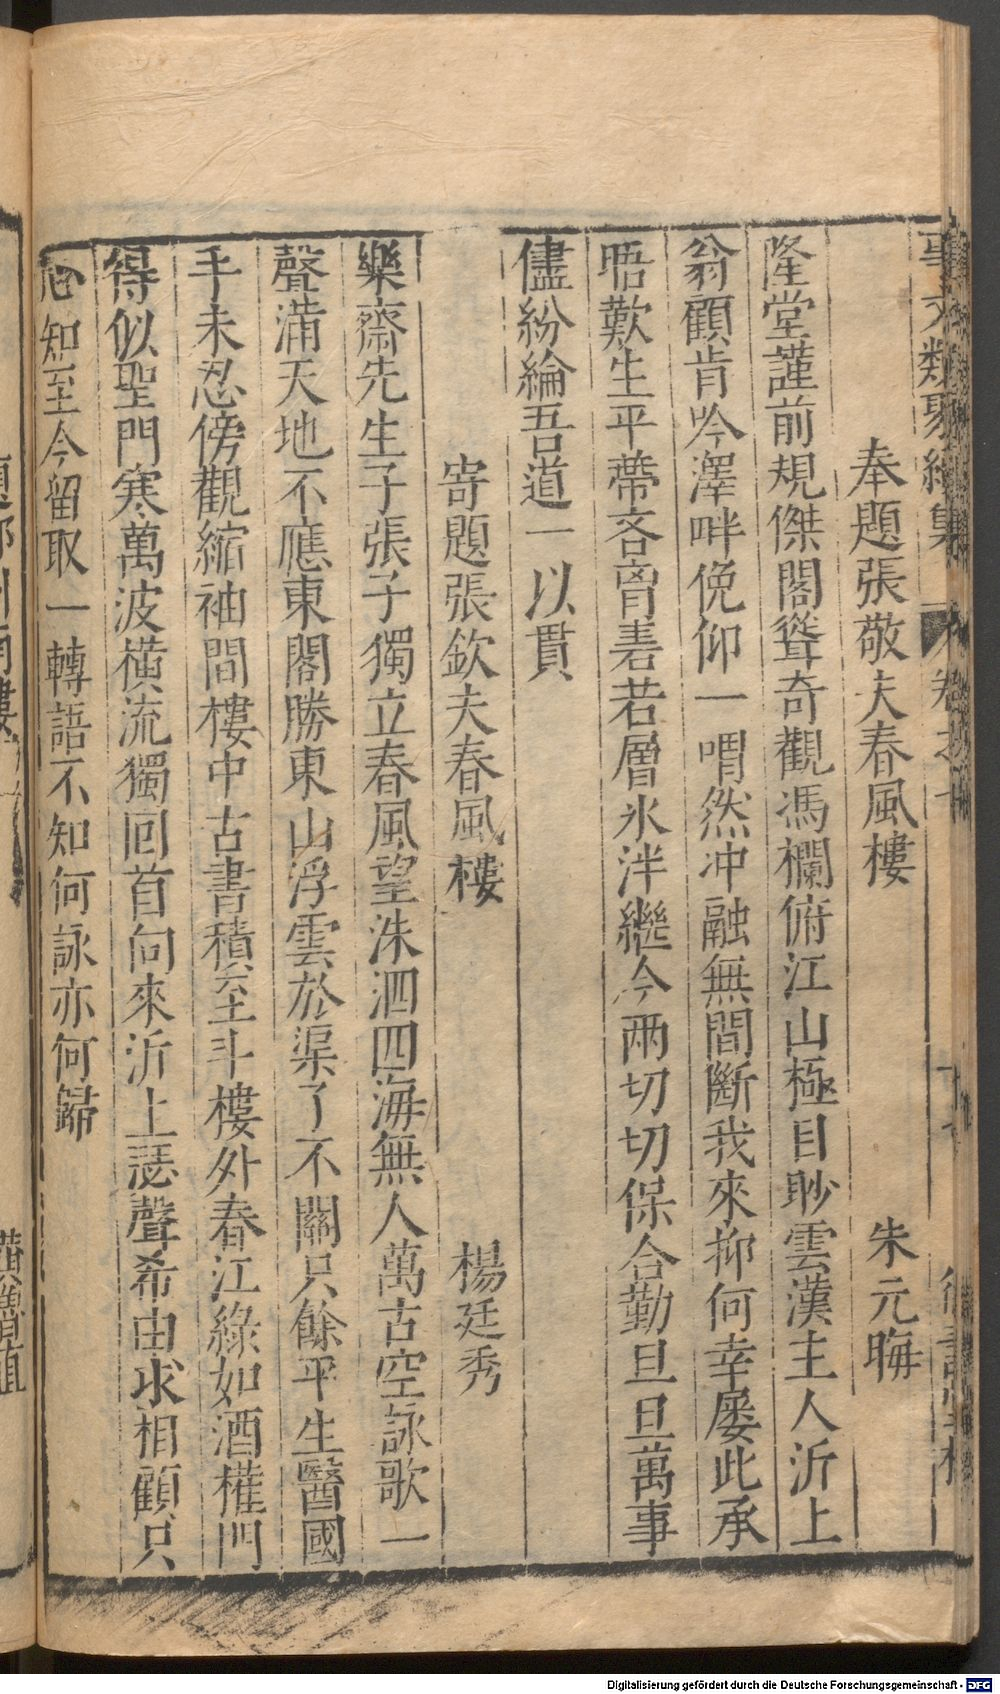 事文類聚續集
奉題張敬夫春風樓
朱元晦
隆堂謹前規傑閣聳奇觀馮欄俯江山極目眇雲漢主人沂上
翁顧肯吟澤畔俛仰一喟然冲融無間斷我來抑何幸屡此承
晤歎生平蔕吝胷春若層氷泮繼今兩切切保合勤旦旦萬事
儘紛綸吾道一以貫
寄題張欽夫春風樓
楊廷秀
樂齋先生子張子獨立春風望洙泗四海無人萬古空詠歌一
聲滿天地不應東閣勝東山浮雲於渠了不關只餘平生醫國
手未忍傍觀縮袖間樓中古書積至斗樓外春江綠如酒權門
得似聖門寒萬波橫流獨回首向來沂上瑟聲希由求相顧只
心知至今留取一轉語不知何詠亦何歸
Digitalisierung gefördert durch die Deutsche Forschungsgemeinschaft - DFG